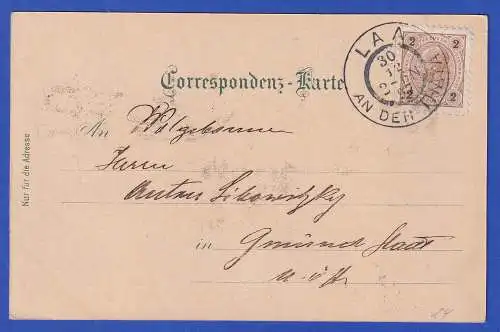 LAA
AN DER THAYA
30
12
2
2
2
2
Correspondenz-Karte
An Wolgeboren
Herrn
Anton Libowitzky
in Gmünd Stadt
N. Ö.
Nur für die Adresse
24